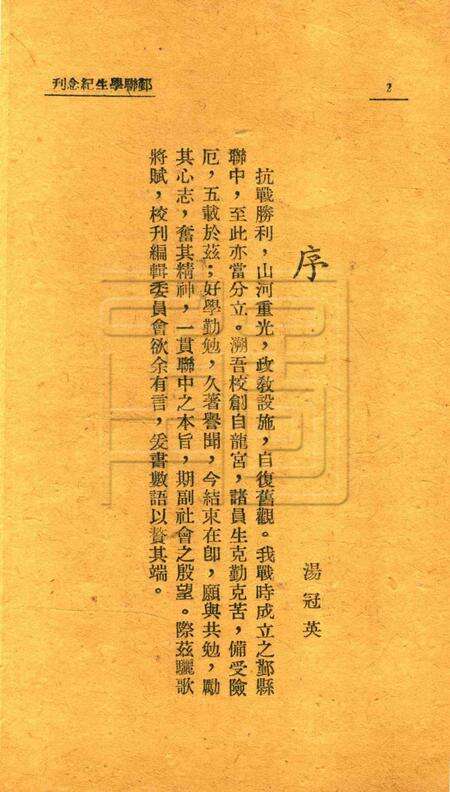 鄞聯學生紀念刊
2
序
湯冠英
抗戰勝利，山河重光，政敎設施，自復舊觀。我戰時成立之鄞縣
聯中，至此亦當分立。溯吾校創自龍宮，諸員生克勤克苦，備受險
厄，五載於茲；好學勤勉，久著譽聞，今結束在卽，願與共勉，勵
其心志，奮其精神，一貫聯中之本旨，期副社會之殷望。際茲驪歌
將賦，校刊編輯委員會欲余有言，爰書數語以贅其端。